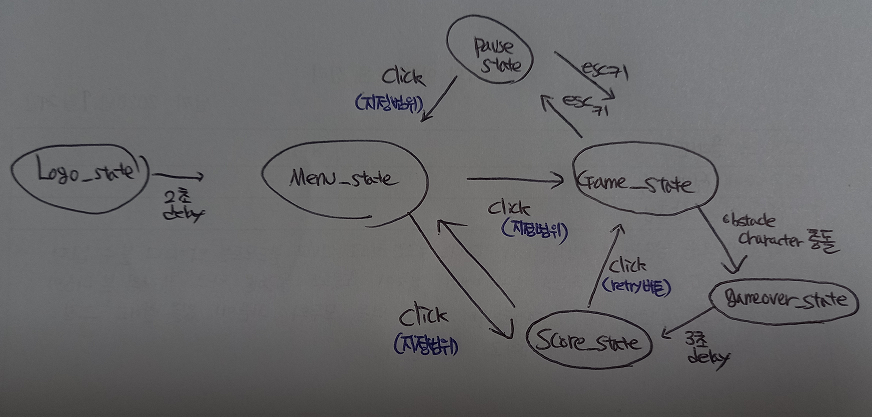 pause
state
click
(지정범위)
esc키
esc키
Logo_state
2초
delay
Menu_state
click
(지정범위)
Game_state
obstacle
character 충돌
click
(retry버튼)
gameover_state
click
(지정범위)
Score_state
3초
delay